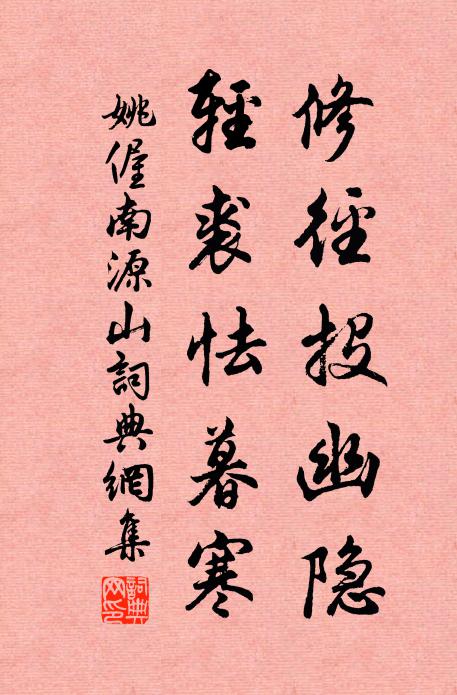 修徑投幽隐
輕裘怯暮寒
姚偓南源山詞典網集
詞典網印